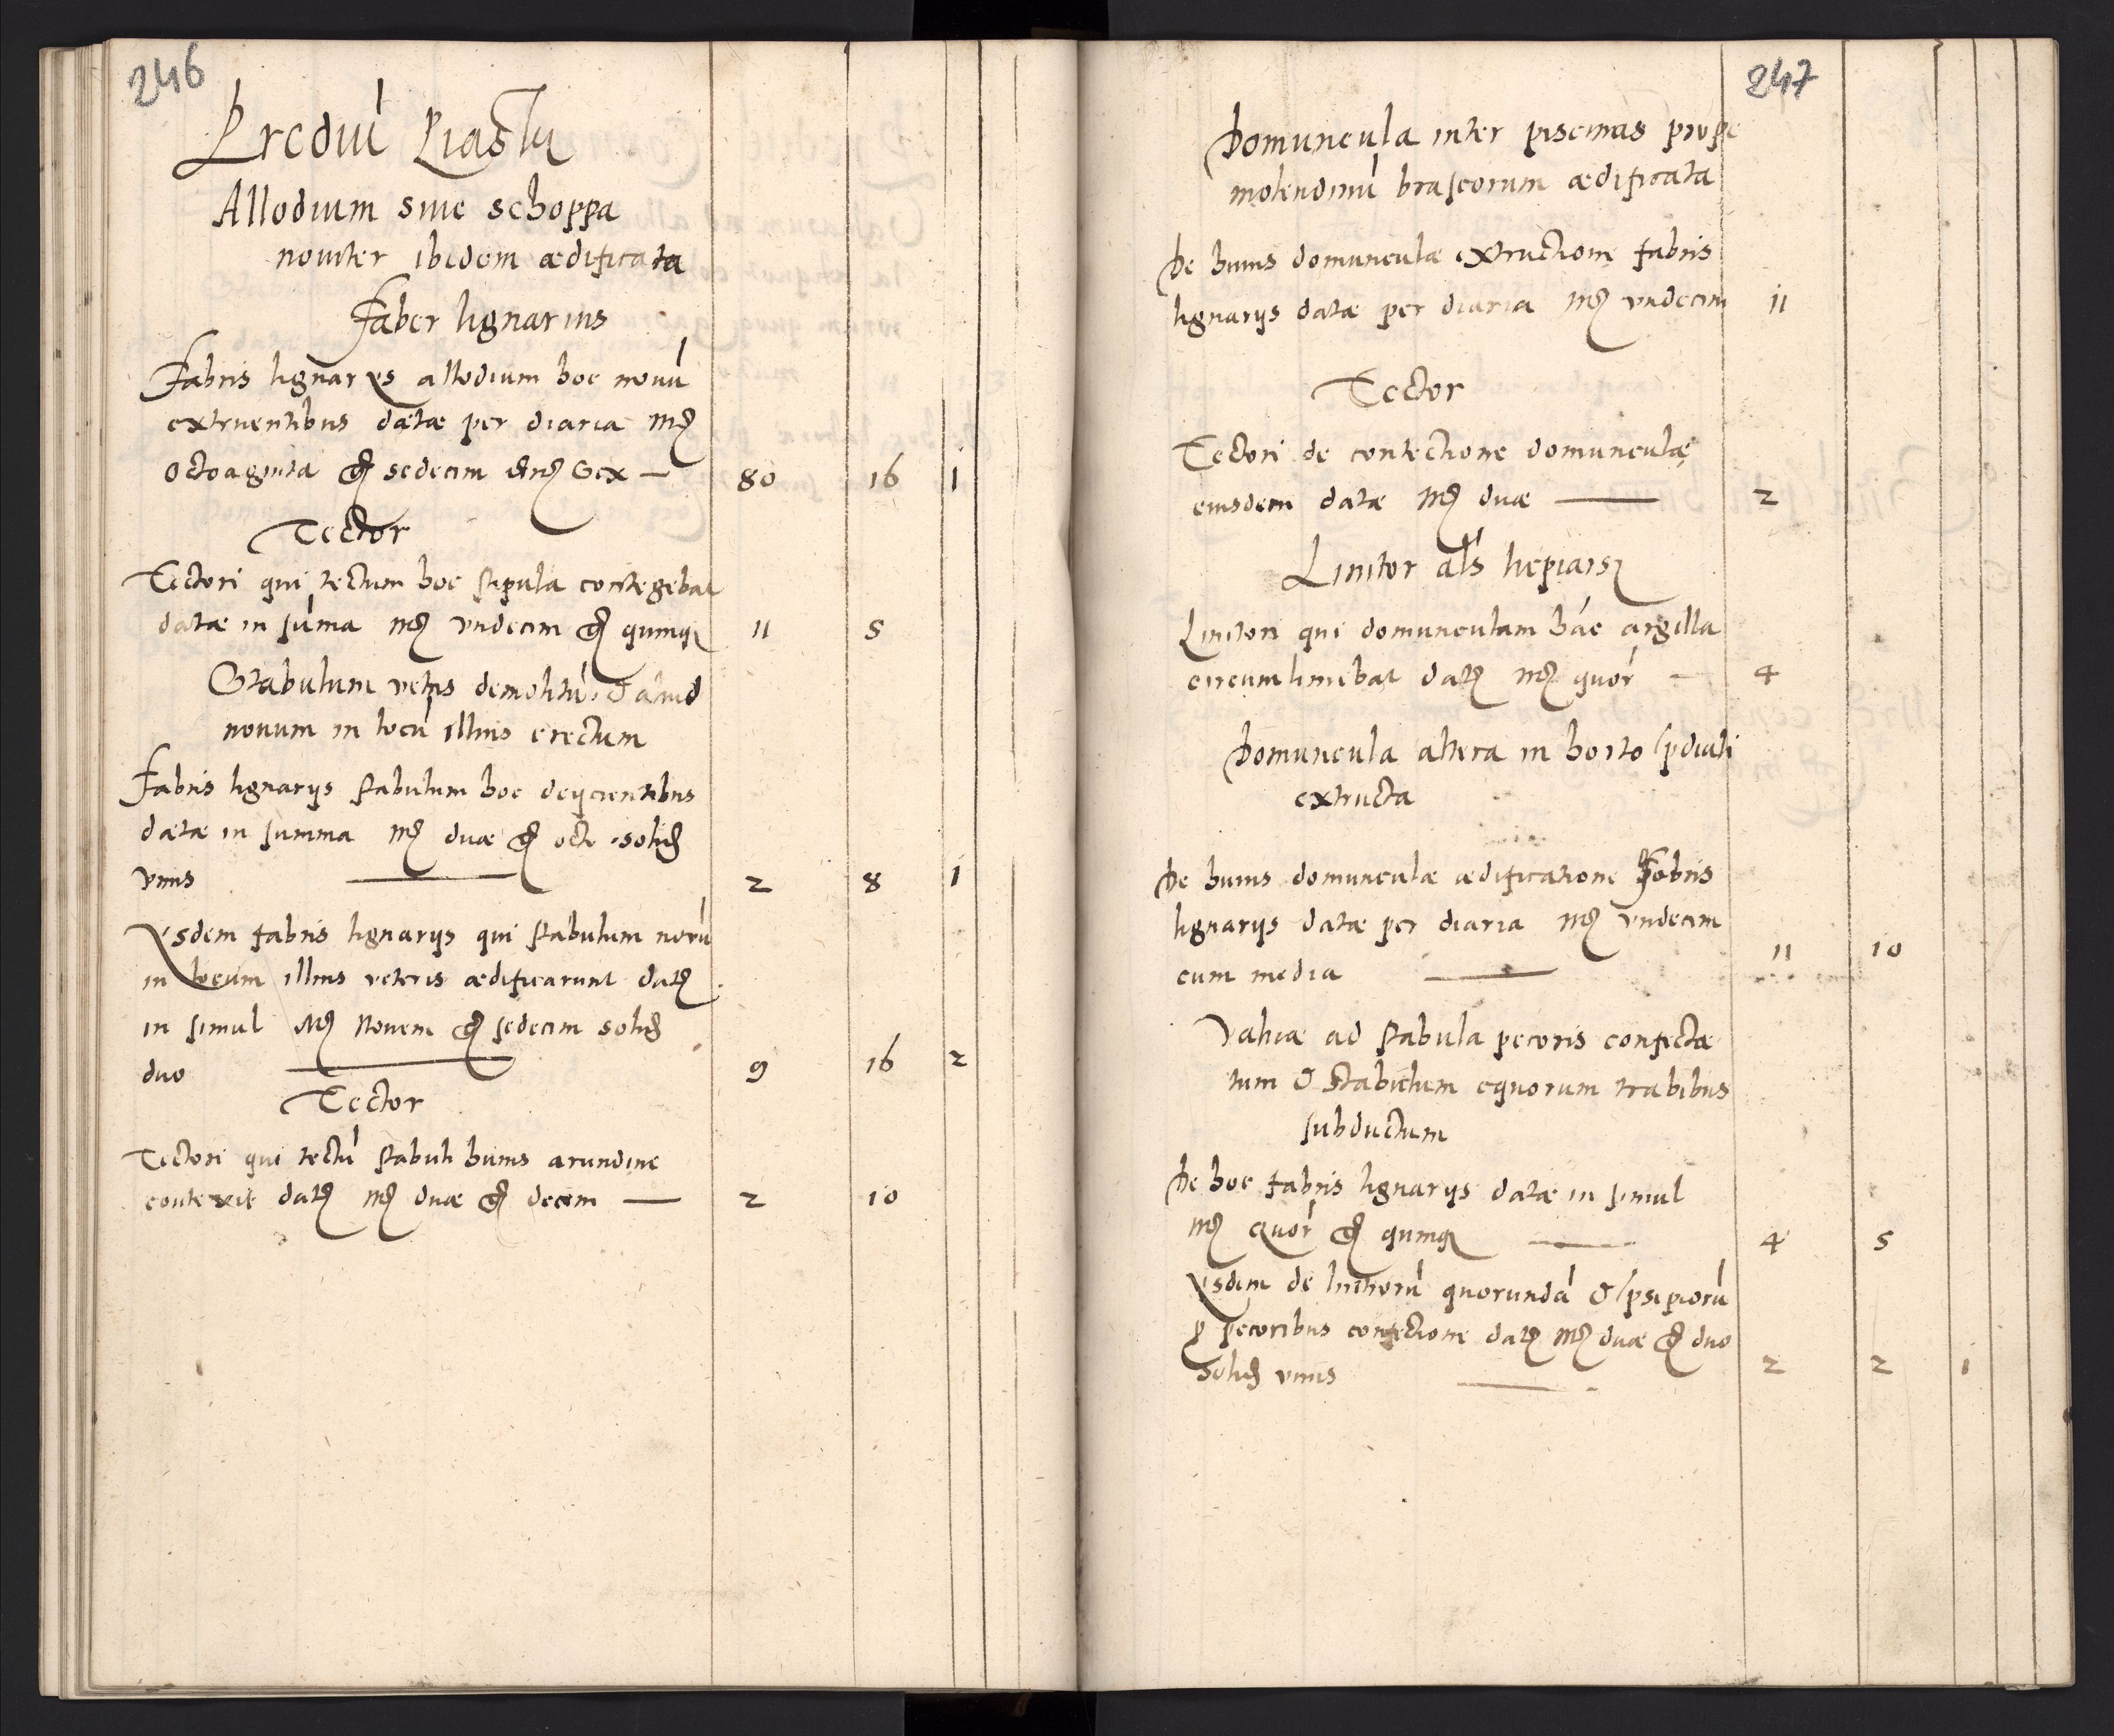 246
Prediũ Piastu
Allodium siue schoppa
nouiter ibidem ædificata
Faber lignarius
Fabris lignarys allodium hoc nouũ
extruentibus datæ per diaria mẹ
octoaginta gẹ sedecim den sex — 80 16 1
Tector
Tectori qui tectum hoc stipula contegebat
datæ in sũma mẹ vndecim gẹ quinqẹ 11 5
Stabulum vetus demolitũ & aliud
nouum in locũ illius erectum
Fabris lignarijs stabulum hoc deijcientibus
datæ in summa mẹ duæ gẹ octo solid
vnus — 2 8 1
Ysdem fabris lignarijs qui stabulum nouũ
in locum illius veteris ædificarunt datẹ
in simul Mẹ Nouem gẹ sedecim solid
duo — 9 16 2
Tector
Tectori qui tectũ stabuli huius arundine
contexit datẹ mẹ duæ gẹ decem — 2 10
247
Domuncula inter piscinas prope
molendinũ braseorum ædificata
De huius domunculæ extructione fabris
lignarijs datæ per diaria mẹ vndecim 11
Tector
Tectori de contectione domunculæ
eiusdem datæ mẹ duæ — 2
Linitor als liepiarz
Linitori qui domunculam hãc argilla
circumlinebat datẹ mẹ quor — 4
Domuncula altera in horto pdiali
extructa
De huius domunculæ ædificatione Fabris
lignarijs datæ per diaria mẹ vndecim
cum media — 11 10
Valuæ ad stabula pecoris confectæ
tum & stabulum equorum trabibus
subductum
De hoc fabris lignarijs datæ in simul
mẹ quor gẹ quinqẹ — 4 5
Ysdem de quorundã & psipiorũ
p pecoribus confectione datẹ mẹ duæ gẹ duo
solid vnus — 2 2 1